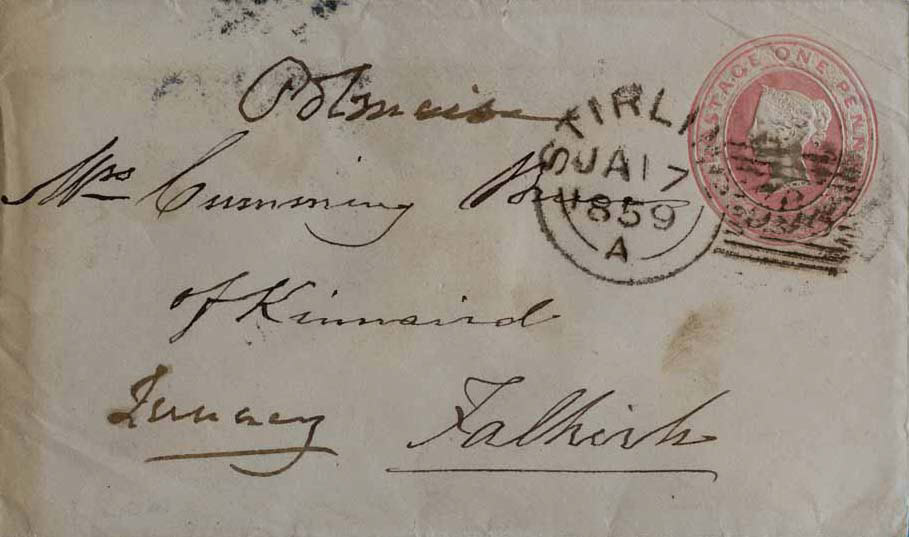 Polmaise
Mrs Cumming Bruce
of Kinnaird
Falkirk
STIRLI
JA 17
1859
A
POSTAGE ONE PENNY